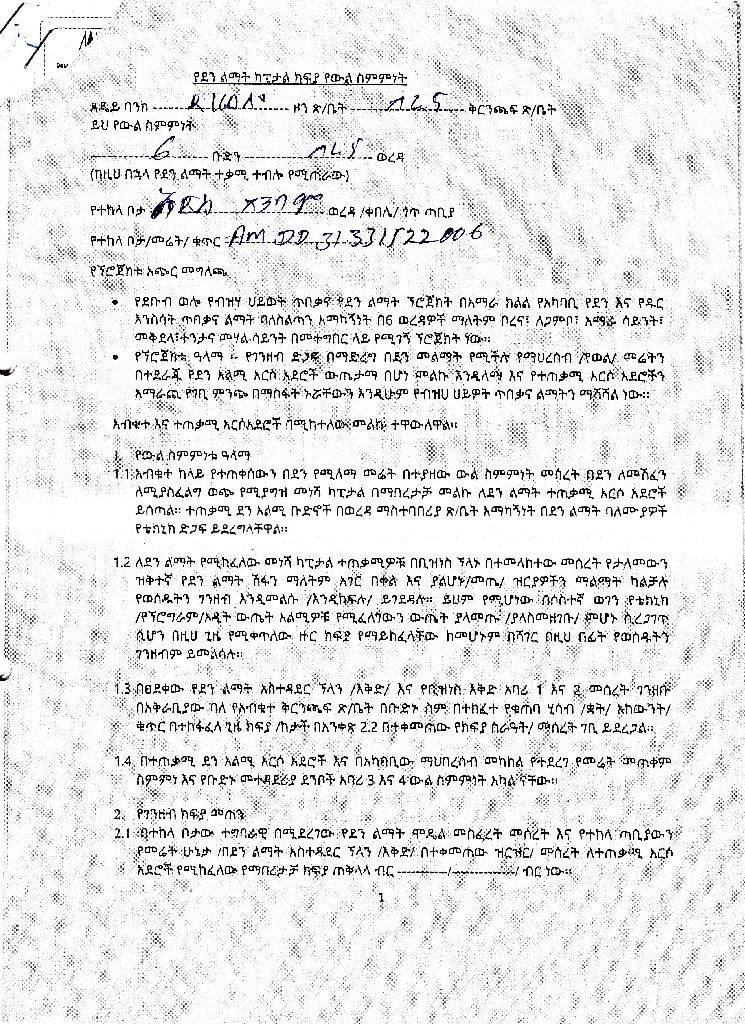 የደን ልማት ካፒታል ክፍያ የውል ስምምነት
ጸዴይ ባንክ ------------- ዞን ጽ/ቤት ------------- ቅርንጫፍ ጽ/ቤት
ይህ የውል ስምምነት
------------- 6 ቡድን ------------- ወረዳ
(ከዚህ በኋላ የደን ልማት ተቃሚ ተብሎ የሚጠራው)
የተከላ ቦታ ወረዳ /ቀበሌ/ ጎጥ ጣቢያ
የተከላ ቦታ/መሬት/ ቁጥር AM DD 31331/22 006
የፕሮጀክቱ አጭር መግለጫ
• የደቡብ ወሎ የብዝሃ ህይወት ጥበቃና የደን ልማት ፕሮጀክት በአማራ ክልል የአካባቢ የደን እና የዱር
እንስሳት ጥበቃና ልማት ባለስልጣን አማካኝነት በ6 ወረዳዎች ማለትም ቦረና፣ ለጋምቦ፣ አማራ ሳይንት፣
መቅደላ፣ተንታና መሃል ሳይንት በመተግበር ላይ የሚገኝ ፕሮጀክት ነው።
• የፕሮጀክቱ ዓላማ – የገንዘብ ድጋፍ በማድረግ በደን መልማት የሚችሉ የማህረሰብ /የወል/ መሬትን
በተደራጁ የደን አልሚ አርሶ አደሮች ውጤታማ በሆነ መልኩ እንዲለማ እና የተጠቃሚ አርሶ አደሮችን
አማራጪ የገቢ ምንጭ በማስፋት ኑሯቸውን እንዲሁም የብዝሀ ህይዎት ጥበቃና ልማትን ማሻሻል ነው።
አብቁተ እና ተጠቃሚ አርሶአደሮች በሚከተለው መልኩ ተዋውለዋል።
1. የውል ስምምነቱ ዓላማ
1.1 አብቁተ ከላይ የተጠቀሰውን በደን የሚለማ መሬት በተያዘው ውል ስምምነት መሰረት በደን ለመሸፈን
ለሚያስፈልግ ወጭ የሚያግዝ መነሻ ካፒታል በማበረታቻ መልኩ ለደን ልማት ተጠቃሚ አርሶ አደሮች
ይሰጣል። ተጠቃሚ ደን አልሚ ቡድኖች በወረዳ ማስተባበሪያ ጽ/ቤት አማካኝነት በደን ልማት ባለሙያዎች
የቴክኒክ ድጋፍ ይደረግላቸዋል።
1.2 ለደን ልማት የሚከፈለው መነሻ ካፒታል ተጠቃሚዎቹ በቢዝነስ ፕላኑ በተመላከተው መሰረት የታለመውን
ዝቅተኛ የደን ልማት ሽፋን ማለትም አገር በቀል እና ያልሆኑ/መጤ/ ዝርያዎችን ማልማት ካልቻሉ
የወሰዱትን ገንዘብ እንዲመልሱ /እንዲከፍሉ/ ይገደዳሉ። ይህም የሚሆነው በሶስተኛ ወገን የቴክኒክ
/የፕሮግራም/ኦዲት ውጤት አልሚዎቹ የሚፈለገውን ውጤት ያላመጡ /ያላስመዘገቡ/ ምሆኑ ሲረጋገጥ
ሲሆን በዚህ ጊዜ የሚቀጥለው ዙር ክፍያ የማይከፈላቸው ከመሆኑም በሻገር በዚህ በፊት የወሰዱትን
ገንዘብም ይመልሳሉ።
1.3 በፀደቀው የደን ልማት አስተዳደር ፕላን /እቅድ/ እና የቢዝነስ እቅድ አባሪ 1 እና 2 መሰረት ገንዘቡ
በአቅራቢያው ባለ የአብቁተ ቅርንጫፍ ጽ/ቤት በቡድኑ ስም በተከፈተ የቁጠባ ሂሳብ /ቋት/ አካውንት/
ቁጥር በተከፋፈለ ጊዜ ክፍያ /ከታች በአንቀጽ 2.2 በተቀመጠው የክፍያ ስራዓት/ መሰረት ገቢ ይደረጋል።
1.4 በተጠቃሚ ደን አልሚ አርሶ አደሮች እና በአካባቢው ማህበረሰብ መካከል የተደረገ የመሬት መጠቀም
ስምምነ እና የቡድኑ መተዳደሪያ ደንቦች አባሪ 3 እና 4 ውል ስምምነት አካል ናቸው።
2. የገንዘብ ክፍያ መጠን
2.1 በተከላ ቦታው ተግባራዊ በሚደረገው የደን ልማት ሞዴል መስፈረት መሰረት እና የተከላ ጣቢያውን
የመሬት ሁኔታ /በደን ልማት አስተዳደር ፕላን /እቅድ/ በተቀመጠው ዝርዝር/ መሰረት ለተጠቃሚ አርሶ
አደሮች የሚከፈለው የማበረታቻ ክፍያ ጠቅላላ ብር -----------/--------------------/ ብር ነው።
1